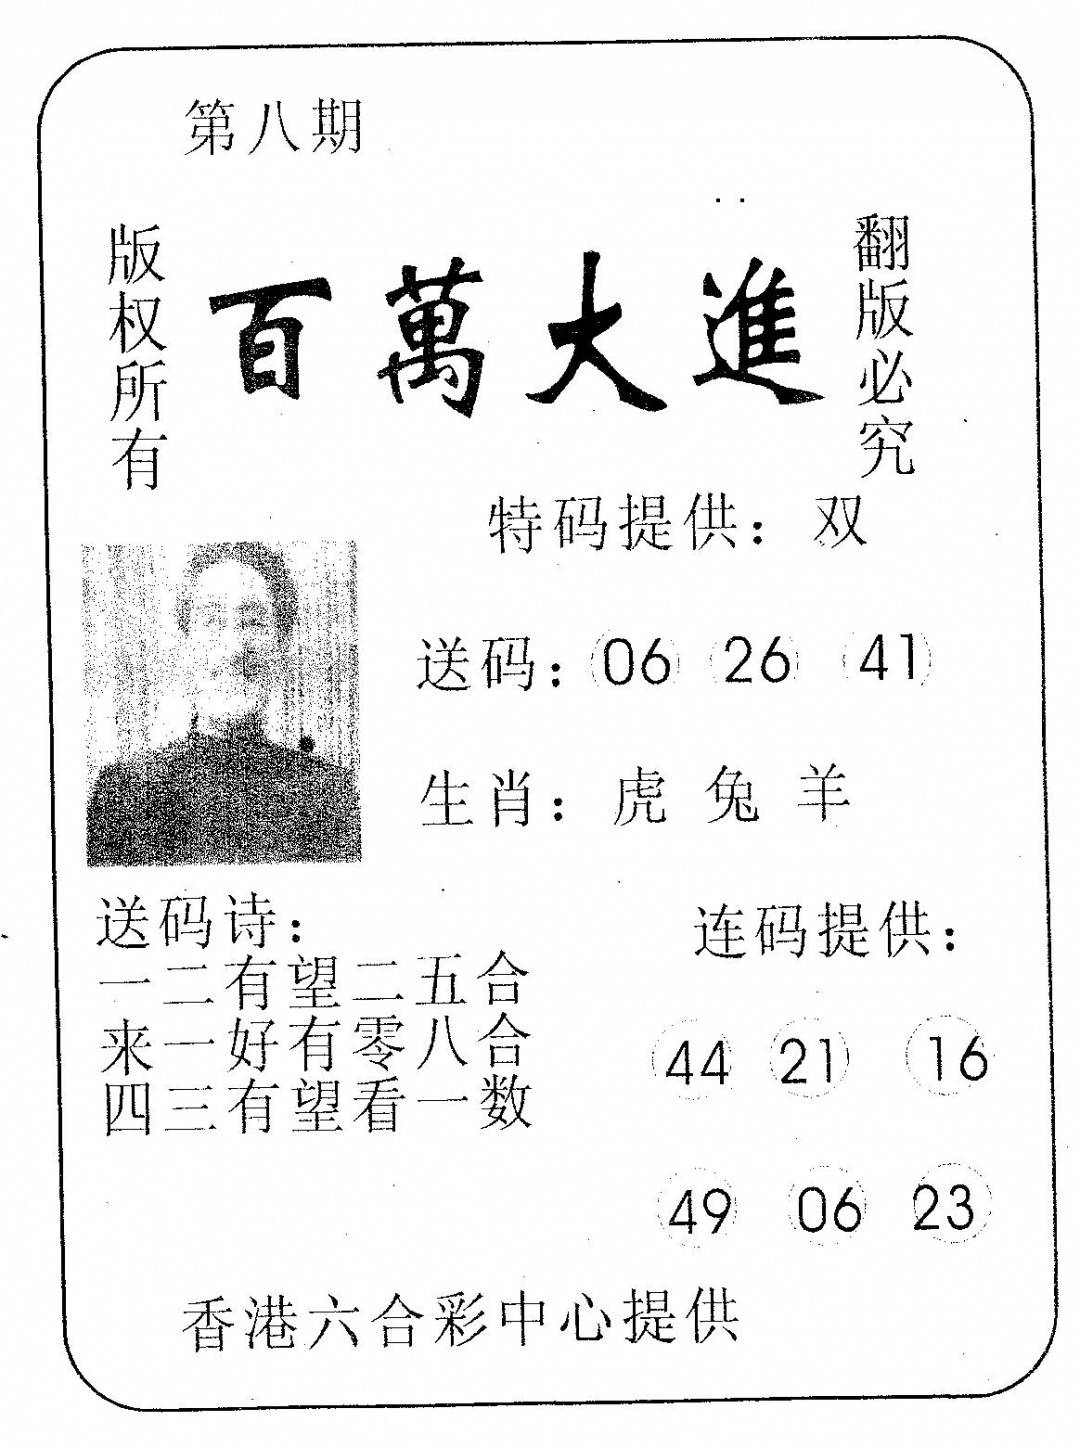 第八期
版权所有
百萬大進
翻版必究
特码提供：双
送码：06 26 41
生肖：虎 兔 羊
送码诗：
一二有望二五合
来一好有零八合
四三有望看一数
连码提供：
44 21 16
49 06 23
香港六合彩中心提供